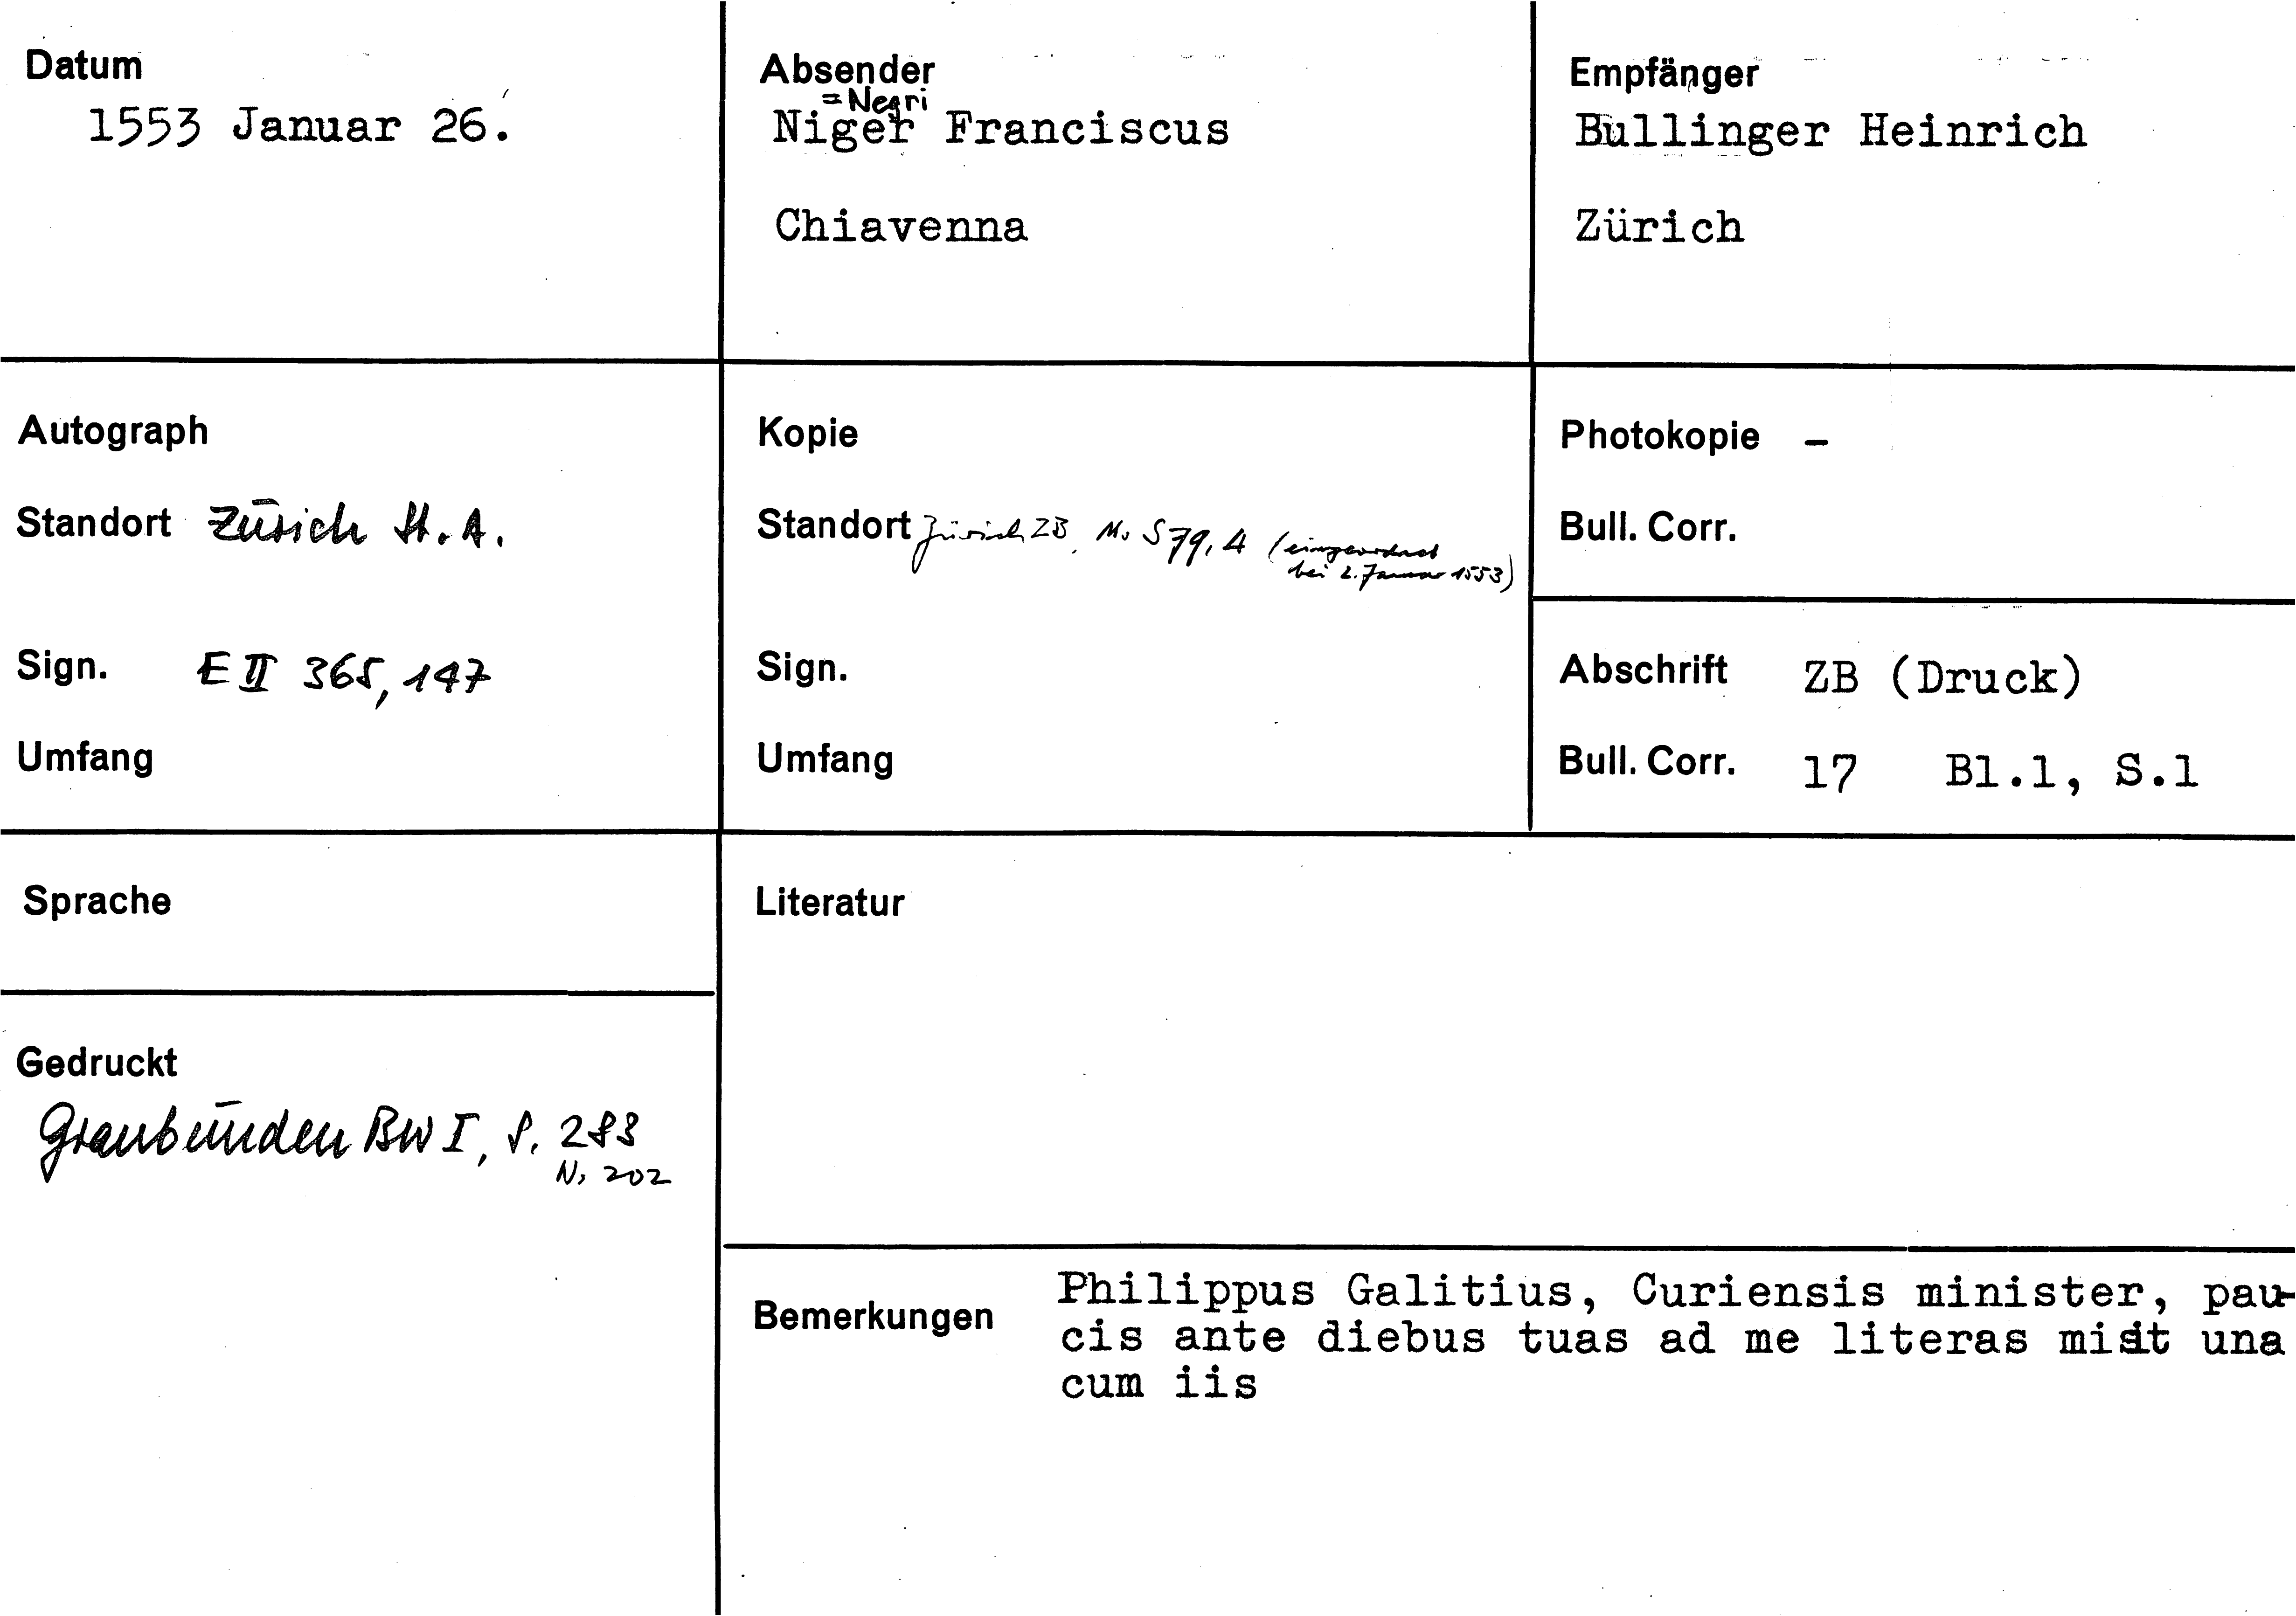 Datum
1553 Januar 26.
Absender
=Negri
Niger Franciscus
Chiavenna
Empfänger
Bullinger Heinrich
Zürich
Autograph
Standort Zürich St. A.
Sign. E II 365, 147
Umfang
Kopie
Standort Zürich ZB, Ms S 79, 4 (eingeordnet
bei 2. Januar 1553)
Sign.
Umfang
Photokopie –
Bull. Corr.
Abschrift ZB (Druck)
Bull. Corr. 17 Bl.1, S.1
Sprache
Gedruckt
Graubünden BW I, S. 283
N. 202
Literatur
Bemerkungen
Philippus Galitius, Curiensis minister, pau-
cis ante diebus tuas ad me literas misit una
cum iis